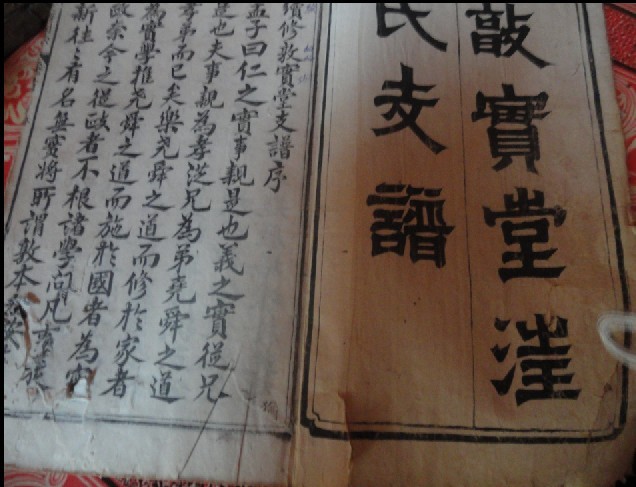 敦實堂汪
氏支譜
續修敦實堂支譜序
孟子曰仁之實事親是也義之實從兄
是也夫事親為孝從兄為弟堯舜之道
孝弟而已矣樂堯舜之道而修於家者
為實學推堯舜之道而施於國者為實
政奈今之從政者不根諸學問凡
新往々有名無實將所謂敦本